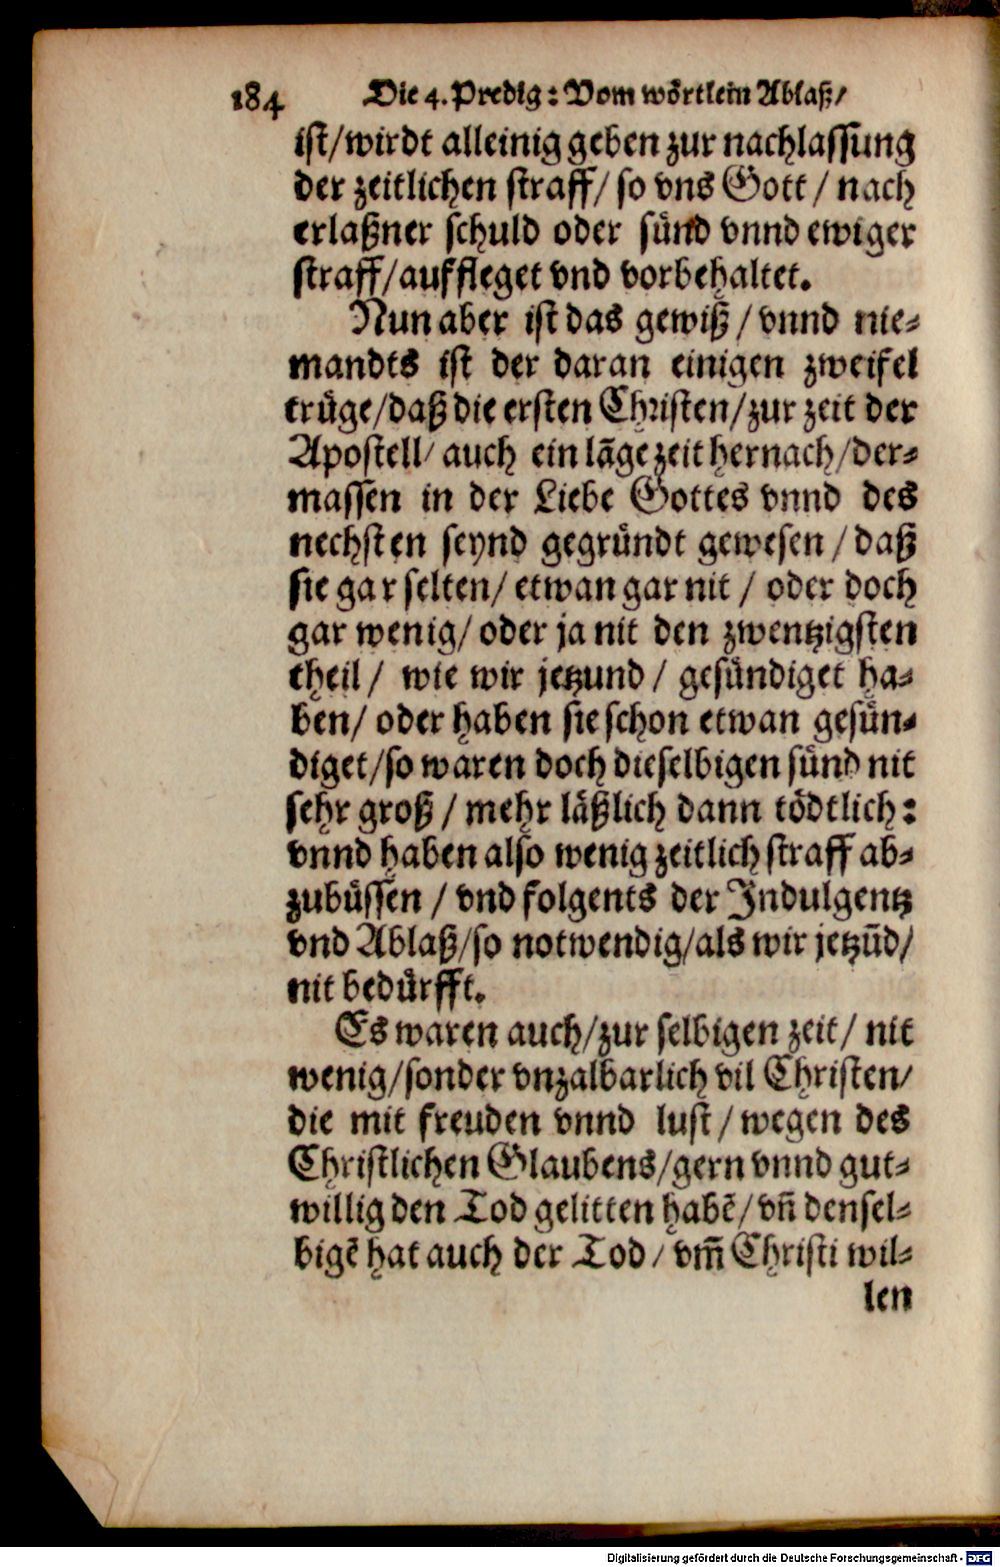 184 Die 4. Predig: Vom wörtlein Ablaß/
ist/wirdt alleinig geben zur nachlassung
der zeitlichen straff/ so vns Gott / nach
erlaßner schuld oder sünd vnnd ewiger
straff/auffleget vnd vorbehaltet.
Nun aber ist das gewiß / vnnd nie-
mandts ist der daran einigen zweifel
trüge/daß die ersten Christen/zur zeit der
Apostell/ auch ein lãge zeit hernach/der-
massen in der Liebe Gottes vnnd des
nechsten seynd gegründt gewesen / daß
sie gar selten/ etwan gar nit / oder doch
gar wenig/ oder ja nit den zwentzigsten
theil / wie wir jetzund / gesündiget ha-
ben/ oder haben sie schon etwan gesün-
diget/so waren doch dieselbigen sünd nit
sehr groß / mehr läßlich dann tödtlich:
vnnd haben also wenig zeitlich straff ab-
zubüssen / vnd folgents der Indulgentz
vnd Ablaß/so notwendig/als wir jetzũd/
nit bedürfft.
Es waren auch/zur selbigen zeit/ nit
wenig/sonder vnzalbarlich vil Christen/
die mit freuden vnnd lust / wegen des
Christlichen Glaubens/gern vnnd gut-
willig den Tod gelitten habẽ/ vñ densel-
bigẽ hat auch der Tod / vm̃ Christi wil-
len
Digitalisierung gefördert durch die Deutsche Forschungsgemeinschaft - DFG